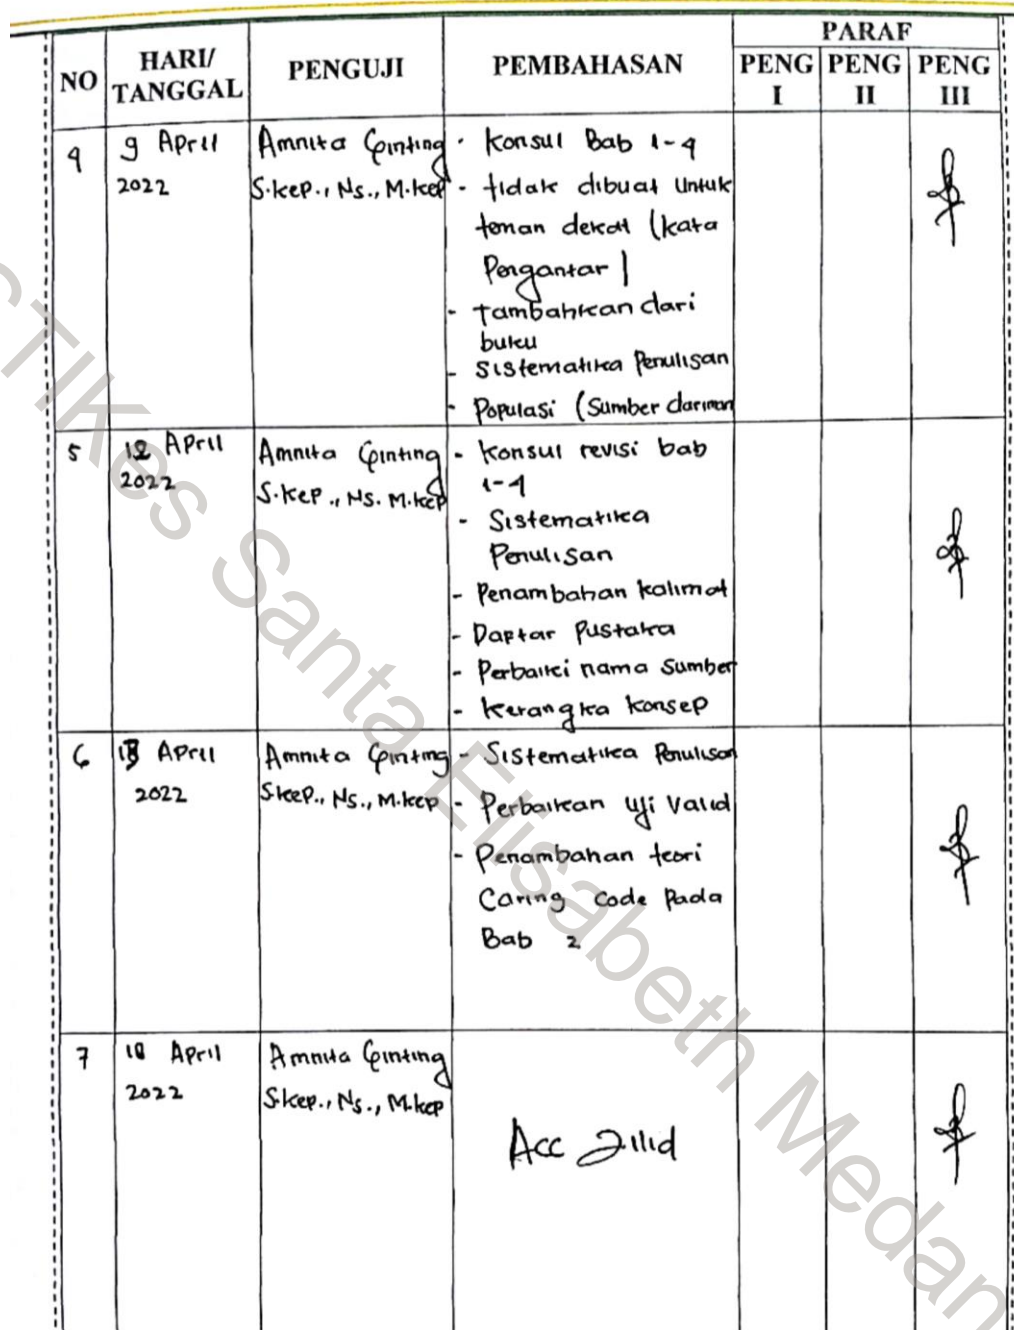 NO HARI/ TANGGAL PENGUJI PEMBAHASAN PARAF
PENG I PENG II PENG III
4 9 April 2022 Amnita Ginting S.kep., Ns., M.kep
- Konsul Bab 1-4
- tidak dibuat untuk
teman dekat (kata
Pengantar)
- tambahkan dari
buku
- Sistematika Penulisan
- Populasi (Sumber dariman
5 12 April 2022 Amnita Ginting S.kep., Ns. M.kep
- Konsul revisi bab
1-4
- Sistematika
Penulisan
- Penambahan kalimat
- Daptar Pustaka
- Perbaiki nama Sumber
- Kerangka Konsep
6 April 2022 Amnita Ginting S.kep., Ns., M.kep
- Sistematika Penulisan
- Perbaikan uji Valid
- Penambahan teori
Caring Code Pada
Bab 2
7 April 2022 Amnita Ginting S.kep., Ns., M.kep
Acc Jilid
STIKes Santa Elisabeth Medan